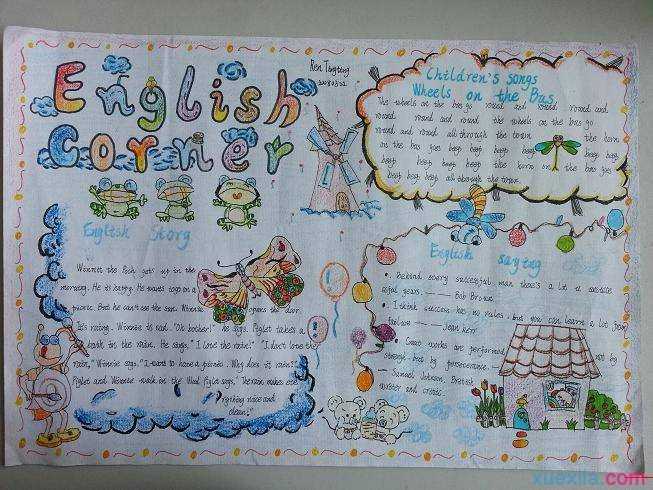 English
Corner
Ren Tingting
Children's songs
Wheels on the Bus
The wheels on the bus go round and round round and
round round and round the wheels on the bus go
round and round all through the town the horn
on the bus goes beep beep beep beep beep
beep beep beep the horn on the bus goes
beep beep beep all through the town
English Story
Winnie the Pooh gets up in the
morning. He is happy. He wants to go on a
picnic. But he can't see the sun. Winnie opens the door.
It's raining. Winnie is sad. "Oh bother!" he says. Piglet takes a
walk in the rain. He says, "I love the rain!" "I don't love the
rain," Winnie says. "I want to have a picnic. Why does it rain?"
Piglet and Winnie walk in the Piglet says, "The rain makes
everything nice and
clean."
English saying
Behind every successful man there's a lot
years. —— Bob Brown
I think success has no rules, but you can learn a lot from
failure —— Jean Kerr
Great works are performed not by
strength but by perseverance.
— Samuel Johnson, British
writer and critic.
xuexila.com